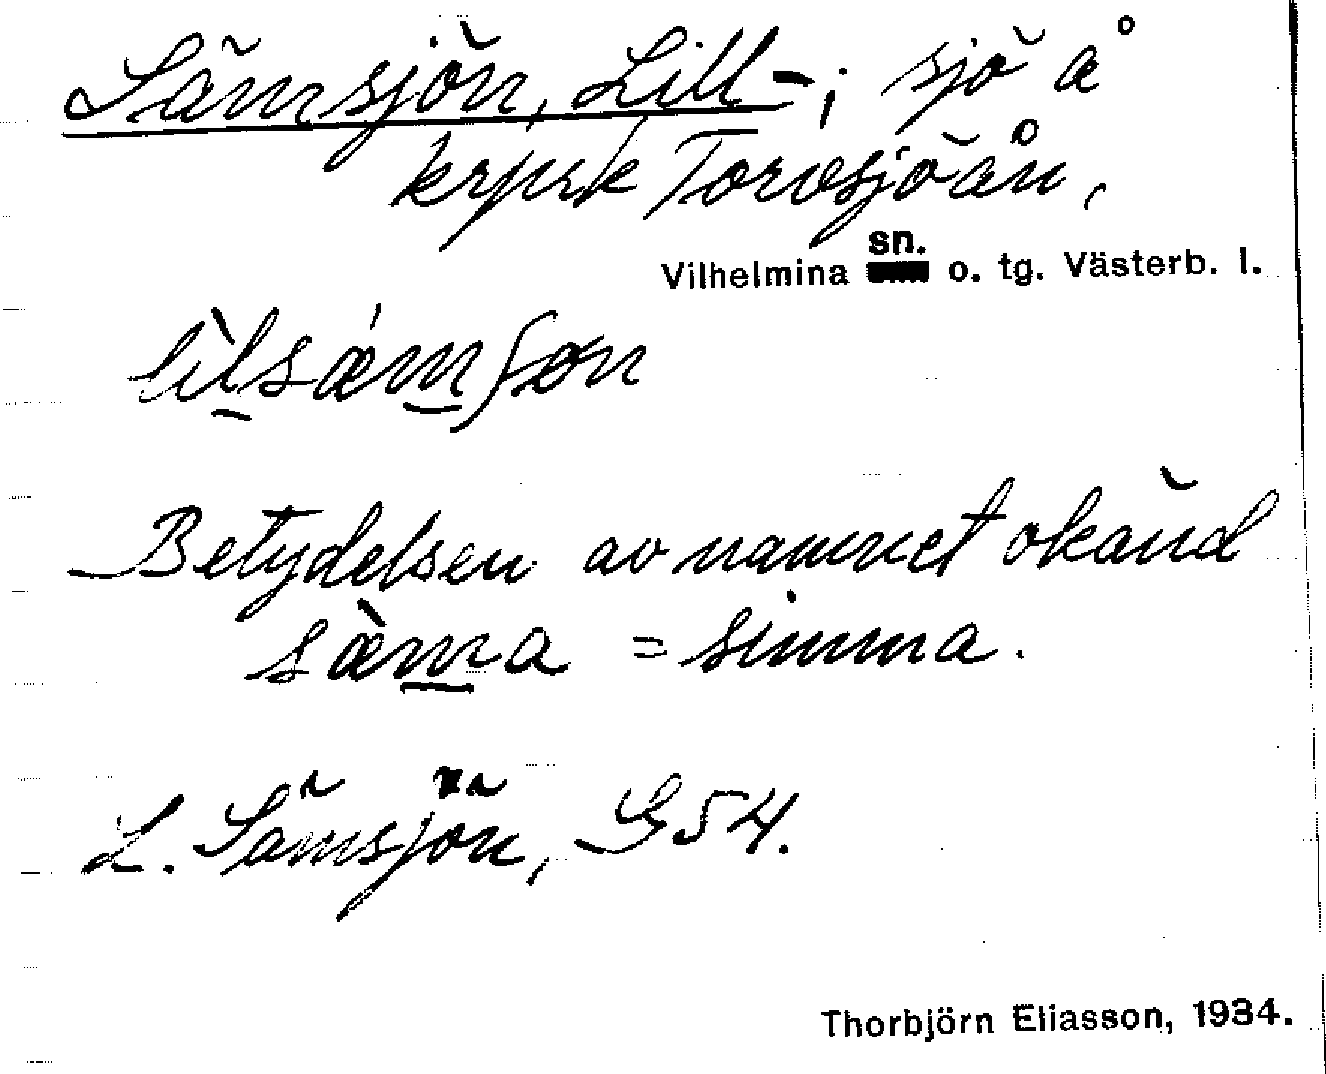 Sämsjön, Lill-; sjö å
krprk Torvsjöån,
sn.
Vilhelmina o. tg. Västerb. l.
lìlsǽmʃøn
Betydelsen av namnet okänd
sæ̀ma = simma.
L. Sämsjön, G54.
Thorbjörn Eliasson, 1934.